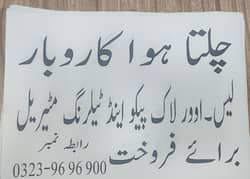 چلتا ہوا کاروبار
لیس۔اوور لاک پیکو اینڈ ٹیلرنگ مٹیریل
برائے فروخت رابطہ نمبر
0323-96 96 900